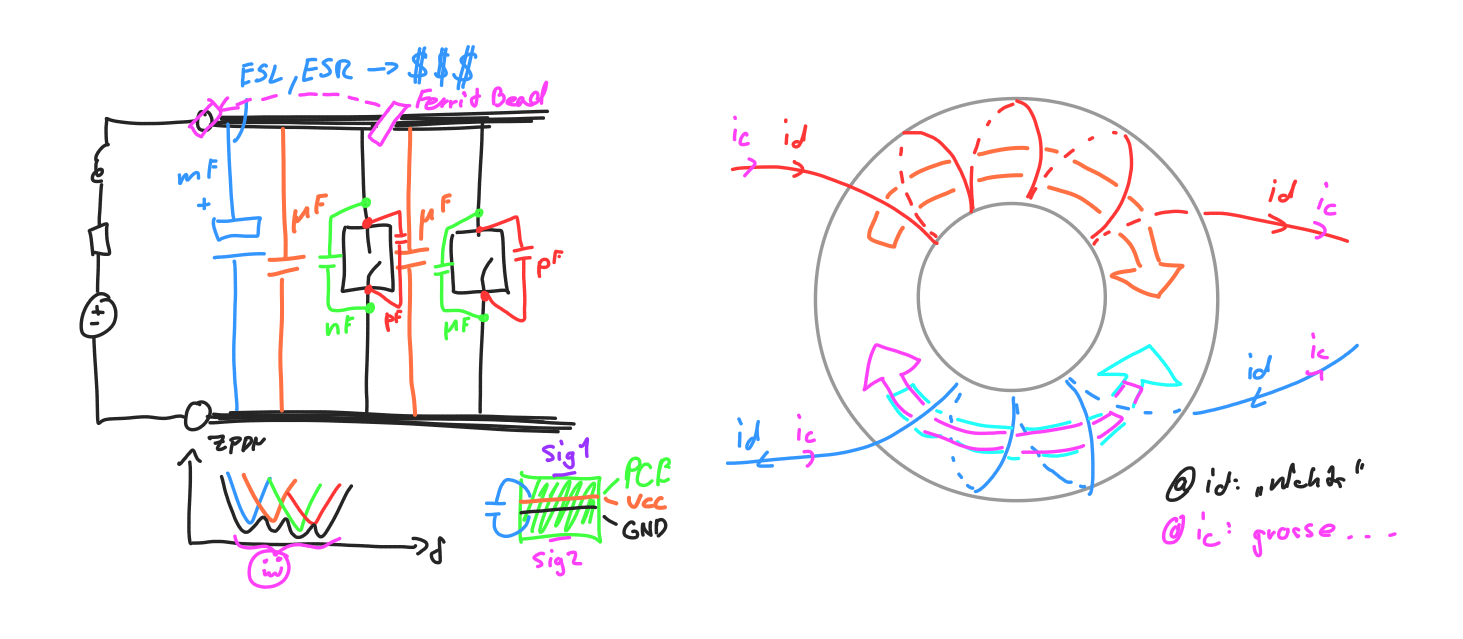 ESL, ESR → $$$
Ferrit Bead
mF
+
µF
µF
nF
pF
µF
pF
+
-
ZPDN
f
Sig1
PCB
VCC
GND
Sig2
ic id
id ic
id ic
id ic
@ id: „nichts"
@ ic: grosse ....